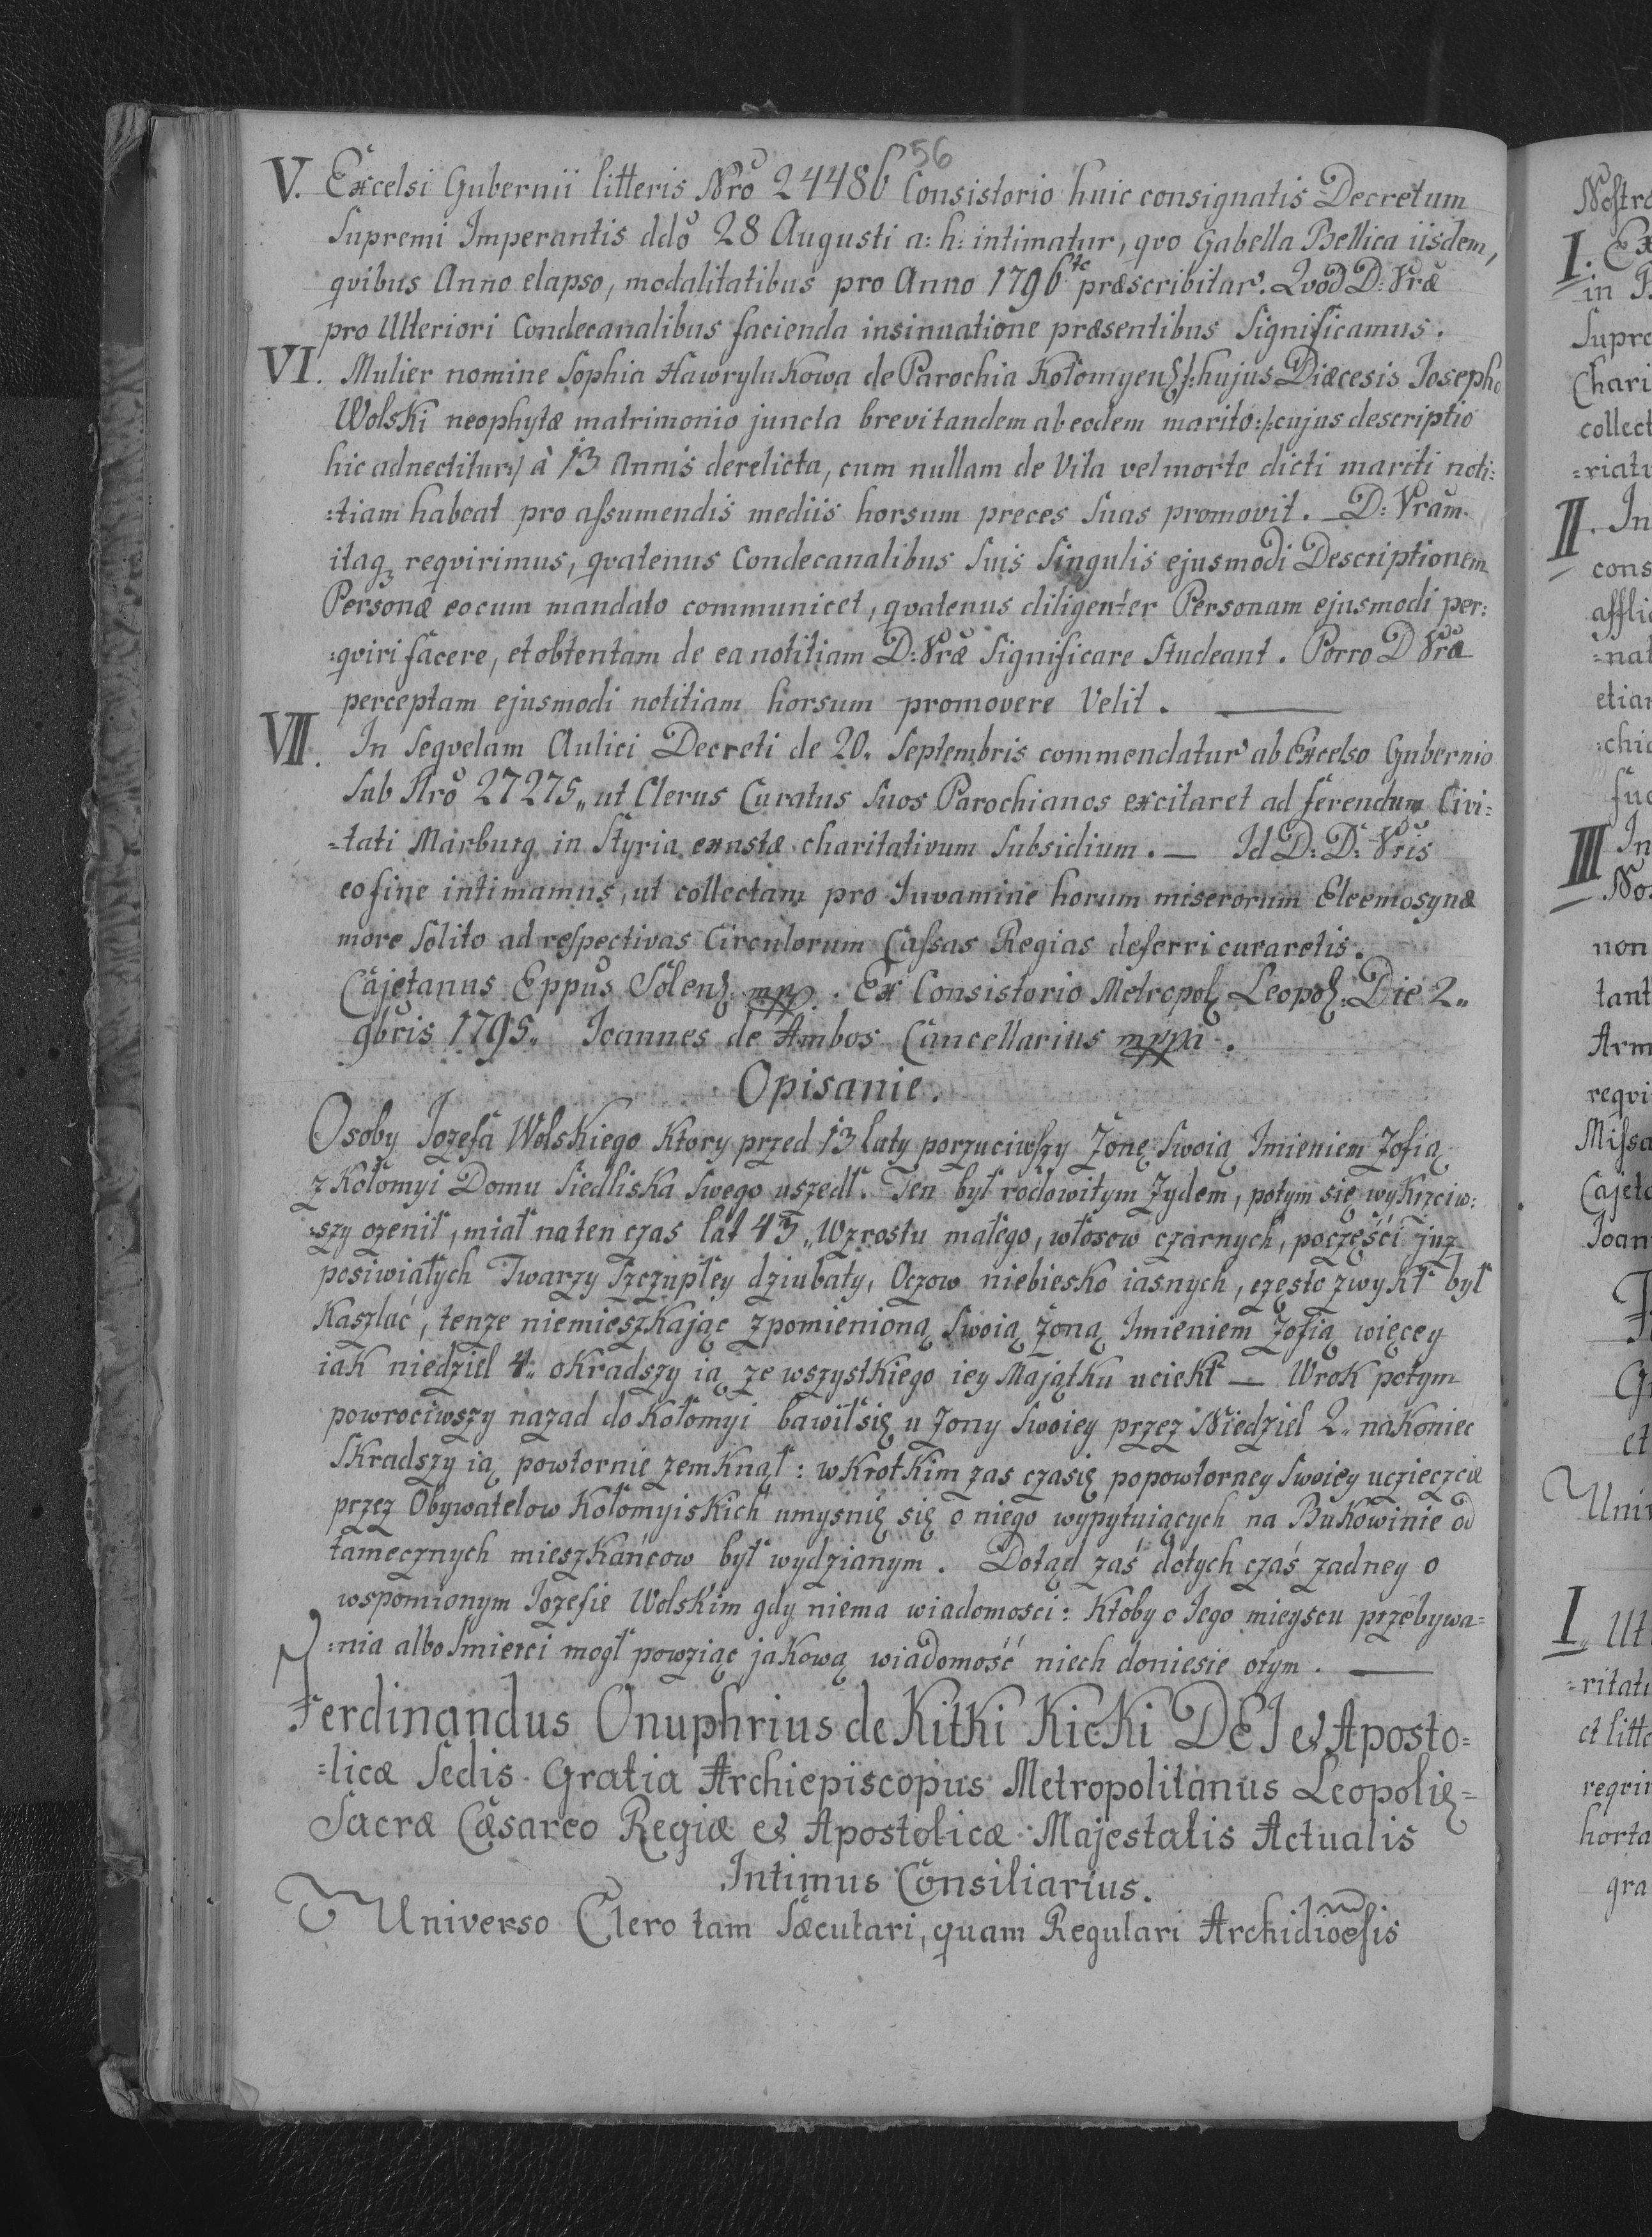 56
V. Excelsi Gubernii litteris Nrō 24486 Consistorio huic consignatis Decretum
Supremi Imperantis ddō 28 Augusti a: h: intimatur, qvo Gabella Bellica iisdem,
qvibus Anno elapso, modalitatibus pro Anno 1796to præscribitur. Qvod D: Vræ
pro Ulteriori Condecanalibus facienda insinuatione præsentibus Significamus.
VI. Mulier nomine Sophia Hawrylukowa de Parochia Kołomyens: hujus Diæcesis Josepho
Wolski neophytæ matrimonio juncta brevi tandem ab eodem marito :/: cujus descriptio
hic adnectitur:/ à 13 Annis derelicta, cum nullam de Vita vel morte dicti mariti noti:
:tiam habeat pro assumendis mediis horsum preces Suas promovit. D: Vram
itaq3 reqvirimus, qvatenus Condecanalibus Suis Singulis ejusmodi Descriptionem
Personæ eo cum mandato communicet, qvatenus diligenter Personam ejusmodi per:
:qviri facere, et obtentam de ea notitiam D: Vræ Significare Studeant. Porro D Vra
perceptam ejusmodi notitiam horsum promovere Velit. —
VII. In Seqvelam Aulici Decreti de 20. Septembris commendatur ab Excelso Gubernio
Sub Nrō 27275„ ut Clerus Curatus Suos Parochianos excitaret ad ferendum Civi=
=tati Marburg in Styria exustæ charitativum Subsidium. — Id D: D: Vris
eo fine intimamus, ut collectam pro Juvamine horum miserorum Eleemosynæ
more Solito ad respectivas Circulorum Cassas Regias deferri curaretis.
Cajetanus Eppus Solens: mpp. Ex Consistorio Metropol: Leopol: Die 2„
9bris 1795„ Joannes de Ambos Cancellarius mppa.
Opisanie.
Osoby Jozefa Wolskiego Ktory przed 13 laty porzuciwszy Zonę Swoią Imieniem Zofią
z Kołomyi Domu Siedliska Swego uszedł. Ten był rodowitym Zydem, potym się wykrzciw:
:szy ozenił, miał na ten czas lat 43„ Wzrostu małego, włosow czarnych, poczęści juz
posiwiałych Twarzy Szczupłey dziubaty, Oczow niebiesko iasnych, często zwykł był
Kaszlać, tenze niemieszkając z pomienioną Swoią Zoną Imieniem Zofią więcey
iak niedziel 4„ okradszy ią ze wszystkiego iey Majątku uciekł — W rok potym
powrociwszy nazad do Kołomyi bawił się u Zony Swoiey przez Niedziel 2„ nakoniec
Skradszy ią powtornie zemknął: w krotkim zas czasię po powtorney Swoiey uczieczcie
przez Obywatelow Kołomyiskich umysnię się o niego wypytuiących na Bukowinie od
tamecznych mieszkańcow był wydzianym. Dotąd zaś dotych czaś zadney o
wspomionym Jozefie Wolskim gdy niema wiadomosci: Ktoby o Jego mieyscu przebywa=
:nia albo Smierci mogł powziąc jakową wiadomość niech doniesie otym. —
Ferdinandus Onuphrius de Kitki Kicki DEI et Aposto=
=licæ Sedis Gratia Archiepiscopus Metropolitanus Leopolien=
Sacræ Cæsareo Regiæ et Apostolicæ Majestatis Actualis
Intimus Consiliarius.
Universo Clero tam Sæculari, quam Regulari Archidioesis
Nostr
I. Ex
in
Supre
Chari
collect
=riat
II. In
cons
afflic
=nat
etiar
:chi
III In
No
non
tant
Arm
reqvi
Missa
Cajet
Joan
et
Univ
I„ Ut
=ritati
et litt
reqvir
horta
gra